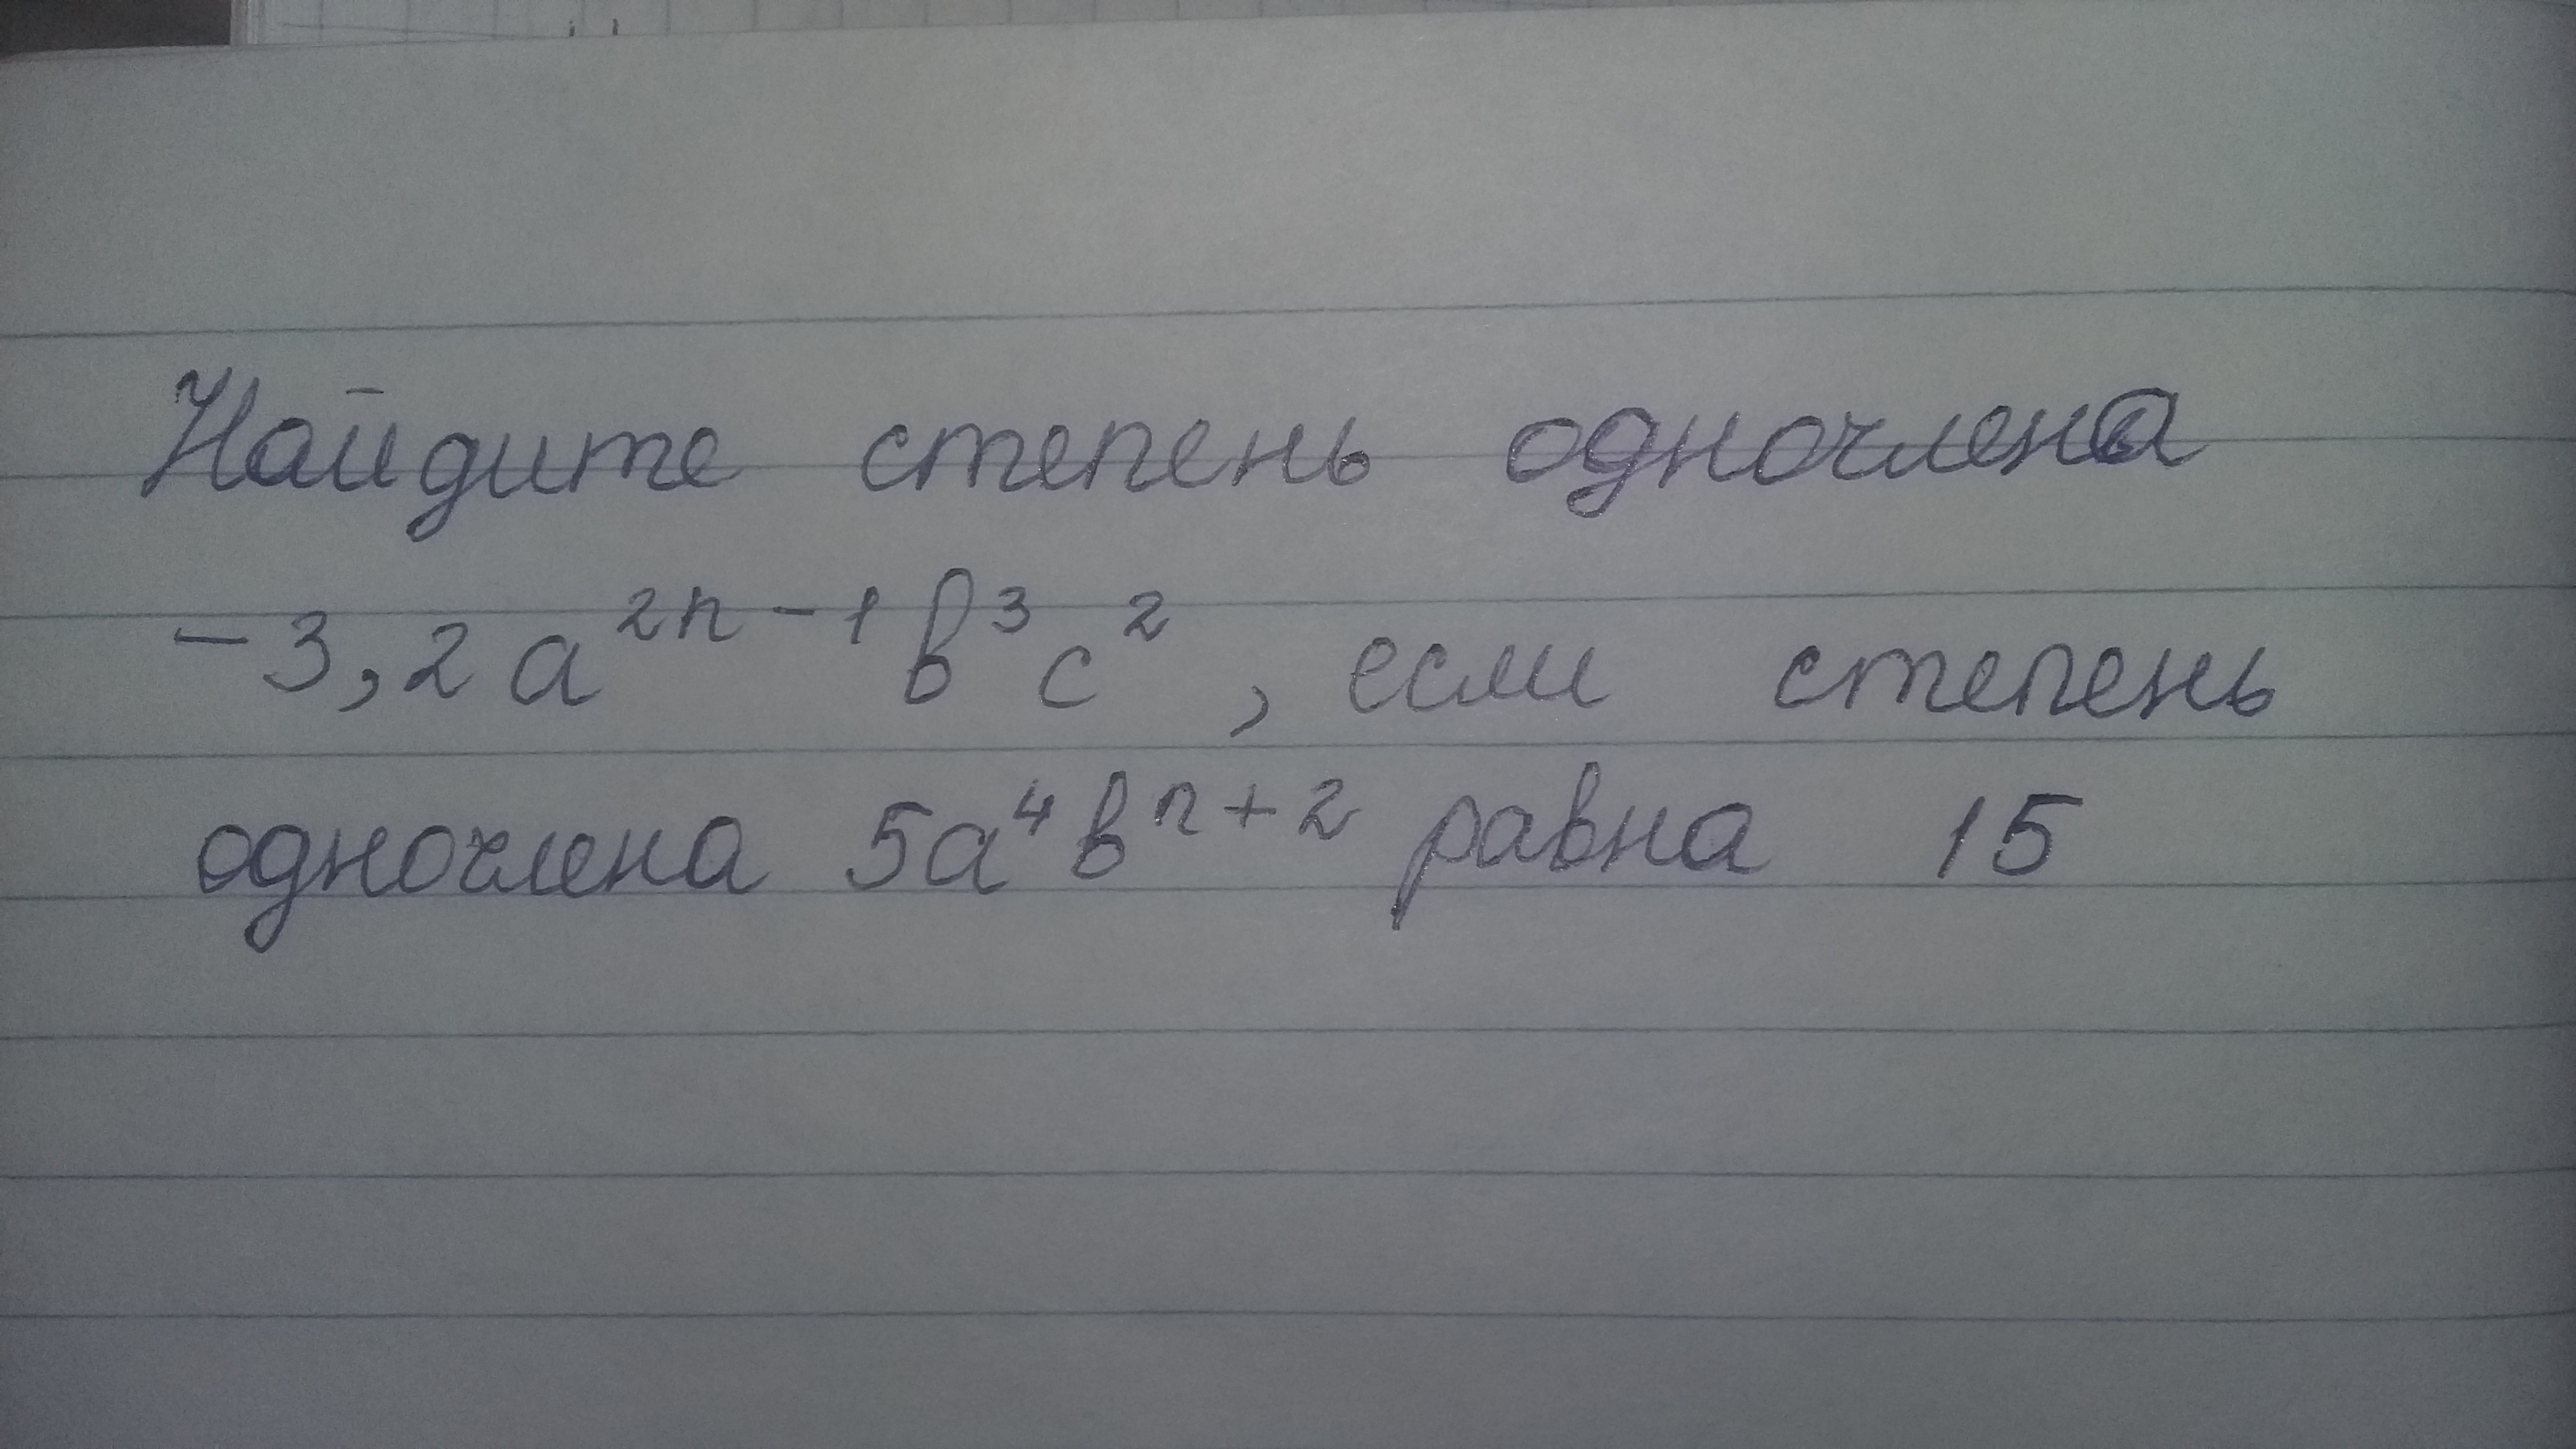 Найдите степень одночлена
-3,2a²ⁿ⁻¹b³c², если степень
одночлена 5a⁴bⁿ⁺² равна 15